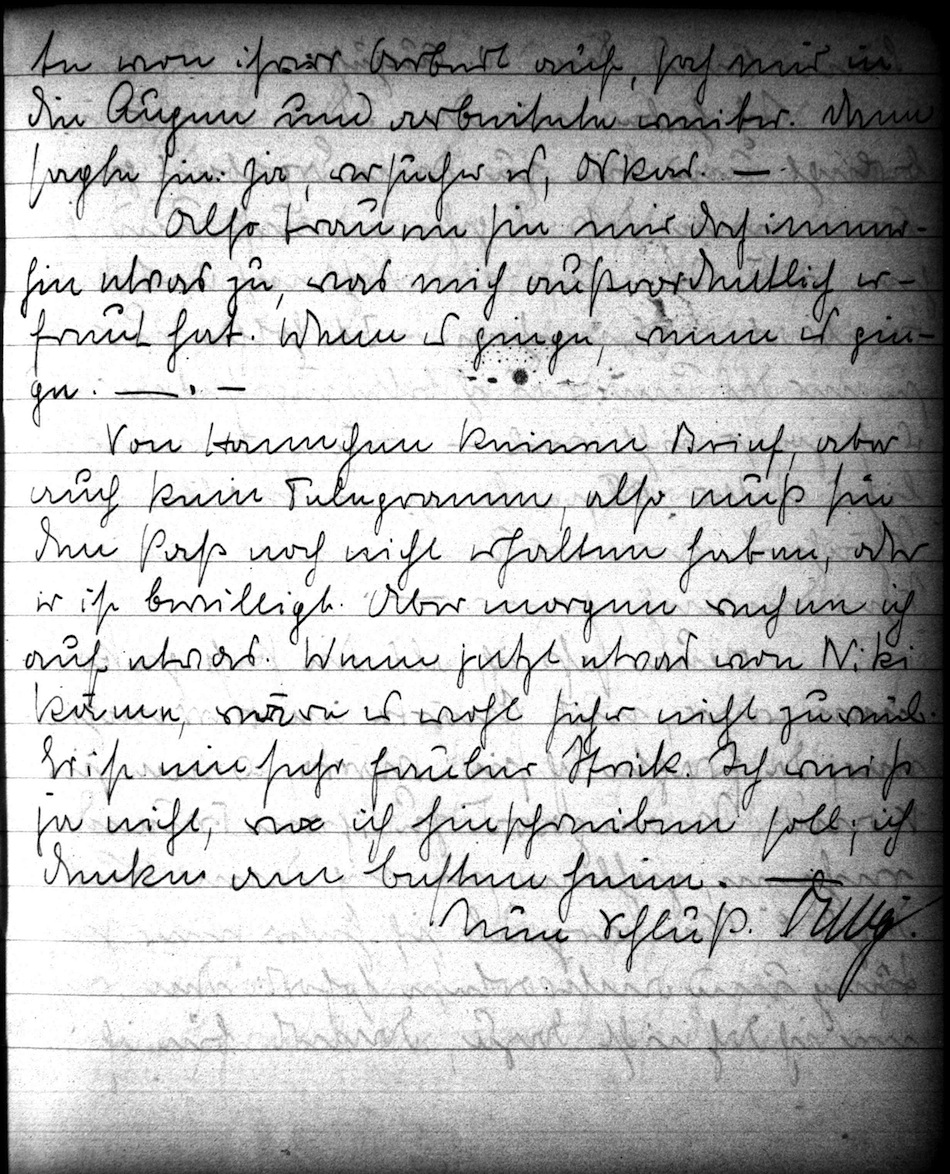 te von ihrer Arbeit auf, sah mir in
die Augen und arbeitete weiter. Dann
sagte sie: Ja, versuche es, Oskar. —
Also trauen sie mir doch immer-
hin etwas zu, was mich außerordentlich er-
freut hat. Wenn es ginge, wenn es gin-
ge. —. —
Von Hannchen keinen Brief, aber
auch kein Telegramm, also muß sie
den Paß noch nicht erhalten haben, oder
er ist bewilligt. Aber morgen rechne ich
auf etwas. Wenn jetzt etwas von Niki
käme, wäre es wohl sicher nicht zuviel.
Er ist ein sehr fauler Strick. Ich weiß
ja nicht, wo ich hinschreiben soll, ich
denke am besten heim. —
Nun Schluß.